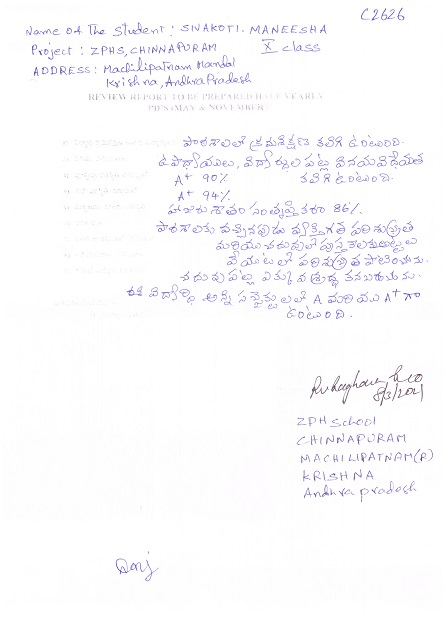 C2626
Name Of The Student: SIVAKOTI. MANEESHA
Project : ZPHS, CHINNAPURAM X class
ADDRESS: Machilipatnam Mandal
Krishna, Andhra Pradesh
REVIEW REPORT TO BE PREPARED HALF YEARLY
PIES (MAY & NOVEMBER)
పాఠశాలలో క్రమశిక్షణ కలిగి ఉంటుంది.
ఉపాధ్యాయులు, విద్యార్థుల పట్ల వినయవిధేయత
A+ 90% కలిగి ఉంటుంది.
A+ 94%
హాజరు శాతం సంతృప్తికరం 86%.
పాఠశాలకు వచ్చినపుడు వ్యక్తిగత పరిశుభ్రత
మరియు చదువులో పుస్తకాలకు అట్టలు
వేయుటలో పరిశుభ్రత పాటించును.
చదువు పట్ల ఎక్కువ శ్రద్ధ కనబరుచును.
ఈ విద్యార్థి అన్ని సబ్జెక్టులలో A మరియు A+ గా
ఉంటుంది.
8/3/2021
ZPH School
CHINNAPURAM
MACHILIPATNAM(R)
KRISHNA
Andhra pradesh